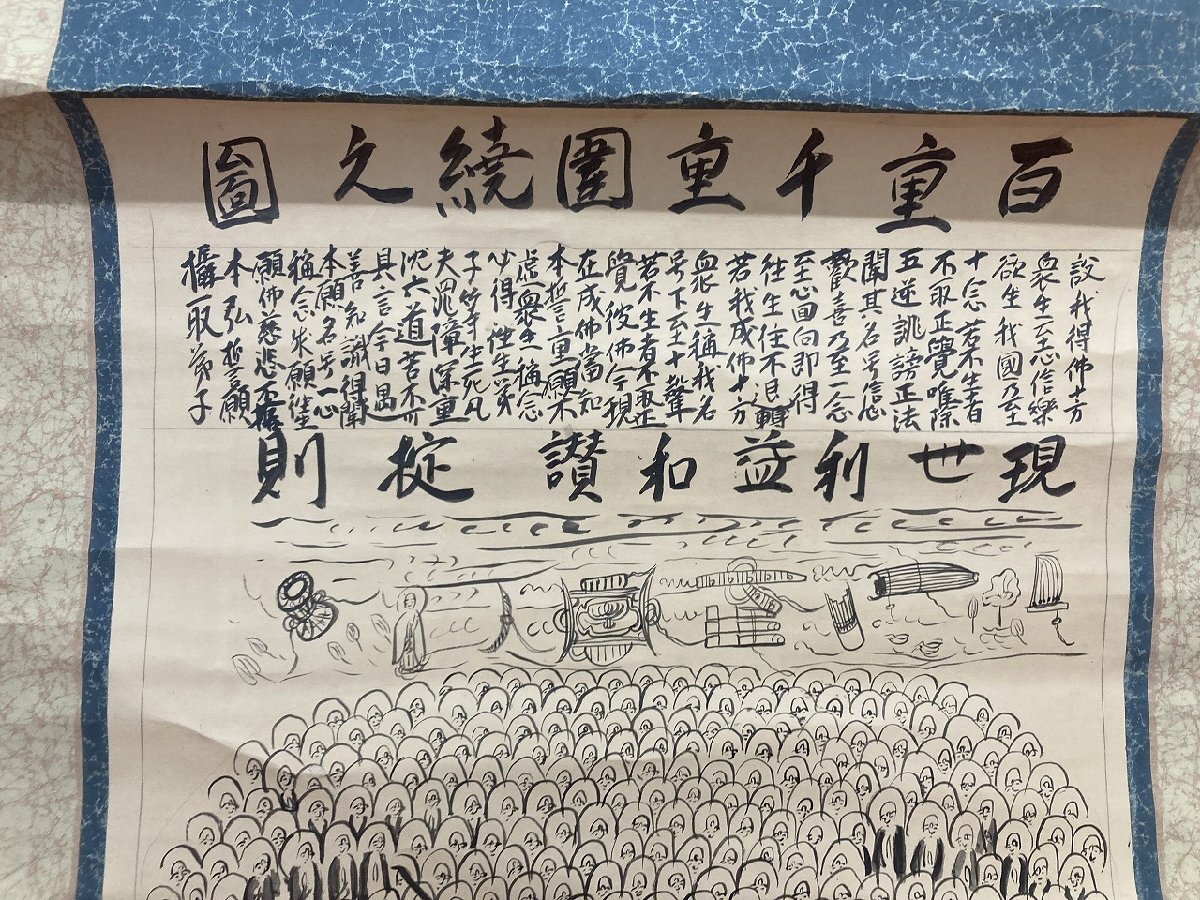 百重千重圍繞之圖
設我得佛十方
衆生至心信樂
欲生我國乃至
十念若不生者
不取正覺唯除
五逆誹謗正法
聞其名号信心
歡喜乃至一念
至心回向即得
往生住不退轉
若我成佛十方
衆生稱我名
号下至十聲
若不生者不取正
覺彼佛今現
在成佛當知
本誓重願不
虚衆生稱念
必得往生第
子等生死凡
夫罪障深重
沈六道苦不可
具言今日遇
善知識得聞
本願名号一心
稱念求願往生
願佛慈悲不捨
本弘誓願
攝取第子
現世利益和讃掟則